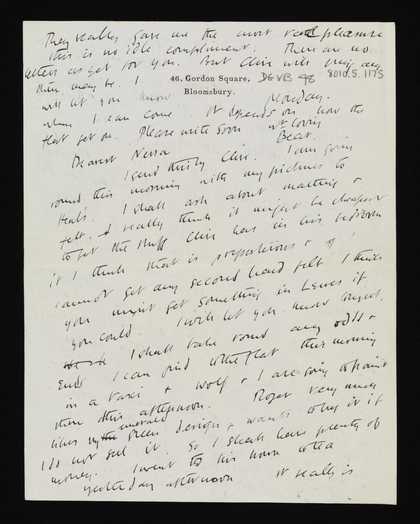 They really gave me the most real pleasure
this is no idle compliment. There are no
letters as yet for you. But Clive will bring any
there may be. I
will let you know
when I can come. It depends on how the
flat gets on. Please write soon
with love
Bear.
46, Gordon Square,
Bloomsbury.
DG VB 48
8010.5.1175
Monday.
Dearest Nessa
I send this by Clive. I am going
round this morning with my pictures to
Heal's. I shall ask about matting &
felt. I really think it might be cheapest
to get the stuff Clive has in his bedroom
if I think that is preposterous & if I
cannot get any second hand felt I think
you might get something in Lewes if
you could. I will let you know anyhow.
I shall take round any odds &
ends I can find to the flat this morning
in a taxi & Wolf & I are going to paint
there this afternoon. Roger very much
likes my emerald green design & wants to buy it if
I do not sell it. So I shall have plenty of
money. I went to his house to tea
yesterday afternoon. It really is